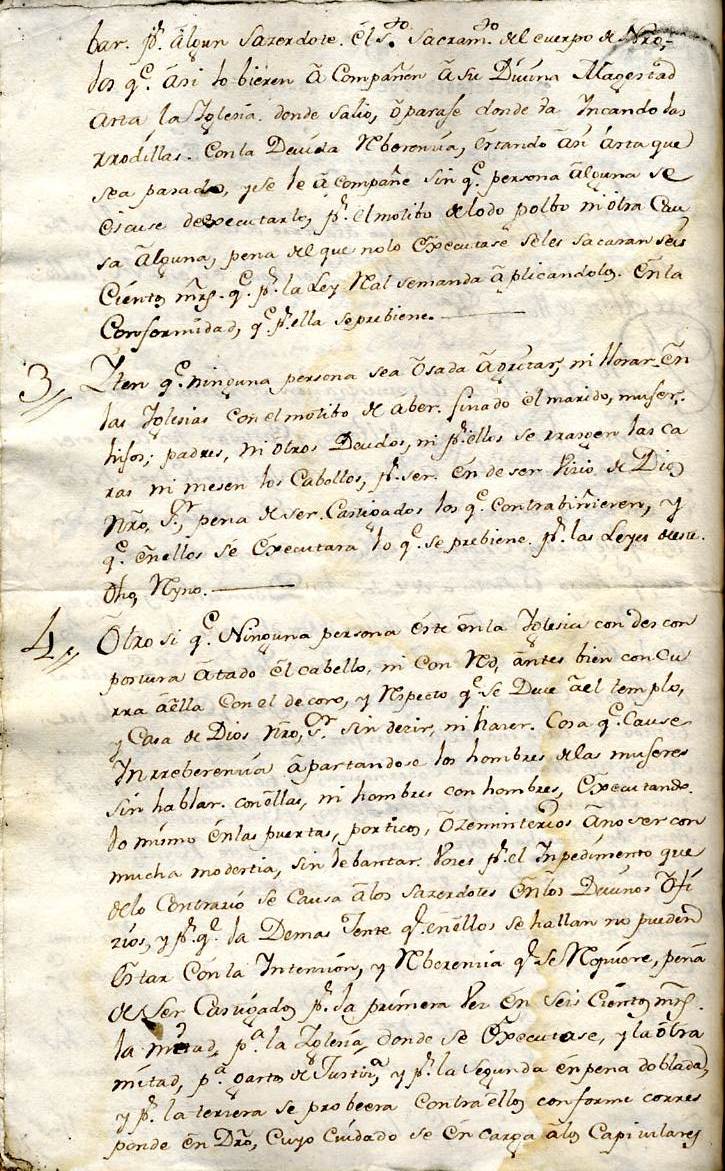 bar. pr. algun Sazerdote. el Sto. Sacramto. del cuerpo de Nro,
los qe. asi lo bieren acompañen a su Divina Magestad
asta la Yglesia. donde salio, o parase donde ba Yncando las
rrodillas. Con la Devida Rberenzia, estando asi asta que
sea pasado, y se le acompañe sin qe. persona alguna se
escuse de executarlo, pr. el motibo de lodo polbo ni otra Cau
sa alguna, pena del que no lo executase seles sacaran seis
Cientos mrs. qe. pr. la Ley Ral se manda aplicandolos. en la
Conformidad, qe. pr. ella se prebiene.
3 Yten qe. ninguna persona sea osada a gritar, ni llorar en
las Yglesias con el motibo de aber. finado el marido, muser,
hijos, padres, ni otros Deudos, ni pr. ellos se rrasgen las ca
ras ni mesen los Cabellos, pr. ser. en de serbizio de Dios
Nro, Sr, pena de ser. Castigados los qe. contrabinieren, y
qe. en ellos se executara lo qe. se prebiene. pr. las Leyes deste.
Dho, Ryno.
4 Otro si qe. Ninguna persona este en la Yglesia con des con
postura atado el cabello, ni con Rd, antes bien con cu
rra a ella con el decoro, y Rspecto qe. se Deve a el templo,
y Casa de Dios Nro, Sr. sin dezir, ni hazer. Cosa qe. Cause
Ynrreberenzia apartandose los hombres de las museres
sin hablar. con ellas, ni hombres con hombres, executando.
lo mismo en las puertas, porticos, o Zeminterios a no ser con
mucha modestia, sin lebantar. bozes pr. el Ynpedimento que
delo Contrario se causa a los Sazerdotes en los Divinos Ofi
zios, y pr. qe. la Demas Jente qe. en ellos se hallan no pueden
estar con la Yntenzion, y Rberenzia qe. se Rquiere, pena
de ser Castigados pr. la primera bez en seis Cientos mrs.
la mitad, pa. la Yglesia, donde se executase, y la otra
mitad, pa. gastos de Justiza, y pr. la Segunda en pena doblada,
y pr. la terzera se probeera contra ellos conforme corres
ponde en Dro, Cuyo Cuidado se encarga a los Capitulares